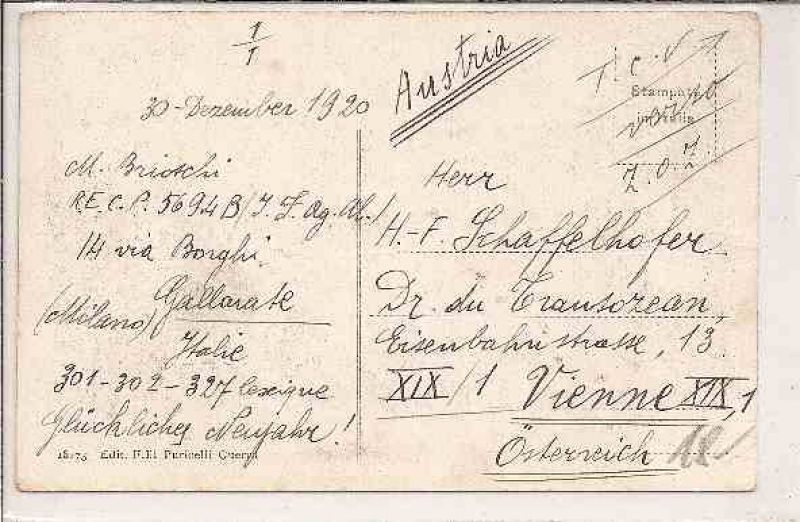 1/1
30-Dezember 1920
M. Brioschi
R.E.C.P. 5694B/I. F. Ag. Al./
14 via Borghi
Gallarate
(Milano)
Italie
301-302-327 lexique
Glückliches Neujahr!
18175 Edit. F.lli Puricelli Guerra
Austria
T. C. V
Stampato
in Italia
Z.O.Z.
Herr
H.-F. Schaffelhofer
Dr. du Transozean,
Eisenbahnstrasse, 13
XIX/1 Vienne XIX,1
Österreich